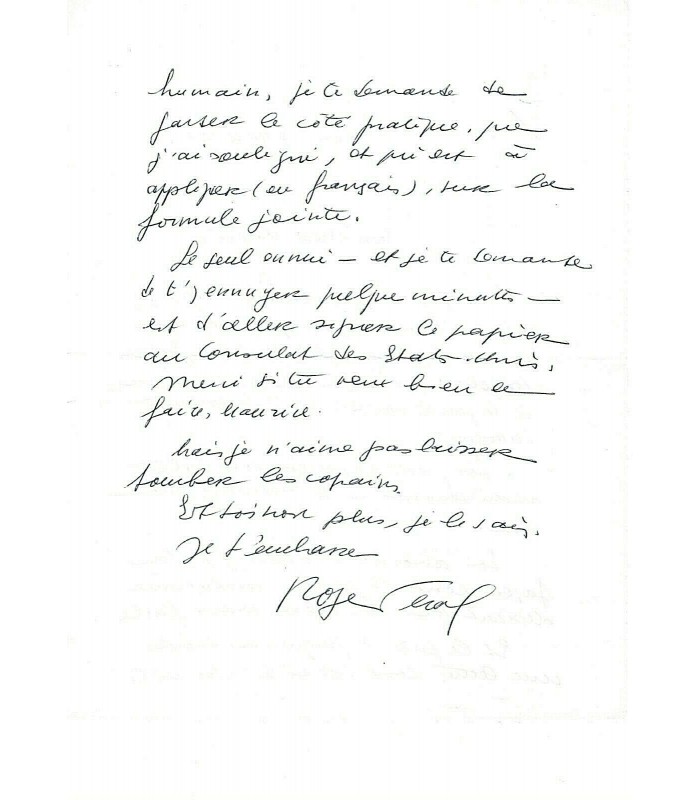 humain, je te demande de
passer le côté pratique, que
j'ai souligné, et qui est à
appliquer (en français), sur la
formule jointe.
Le seul ennui — et je te demande
de t'y ennuyer quelques minutes —
est d'aller signer le papier
au Consulat des États-Unis.
Merci si tu veux bien le
faire, Maurice.
Mais je n'aime pas laisser
tomber les copains
Et toi non plus, je le sais.
Je t'embrasse
Roger